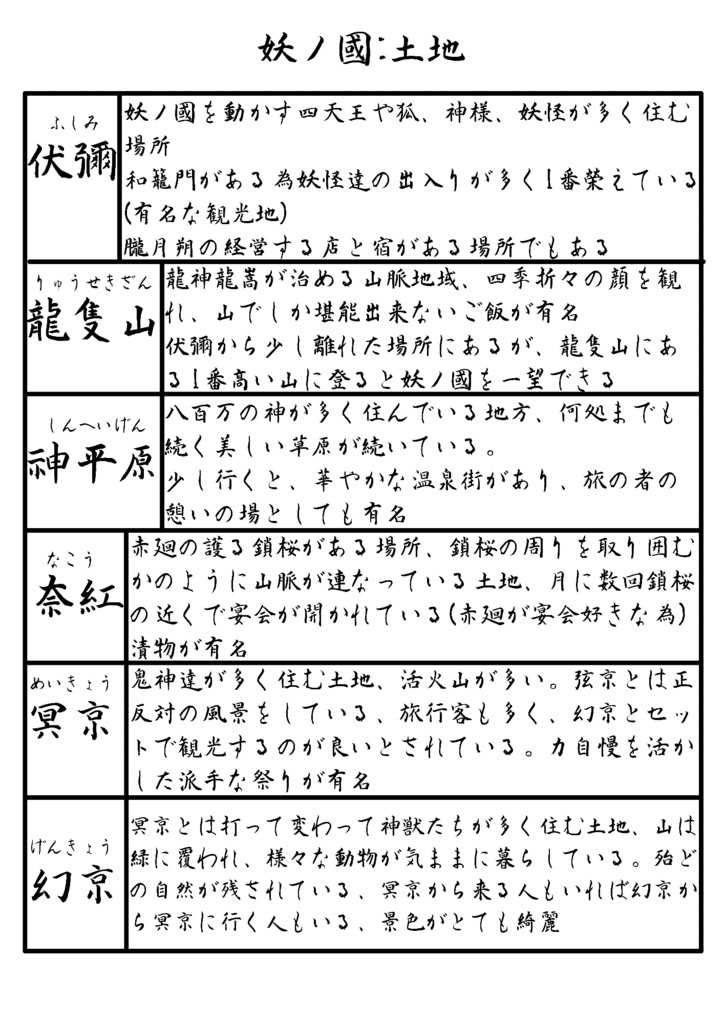 妖ノ國:土地
ふしみ
伏彌
妖ノ國を動かす四天王や狐、神様、妖怪が多く住む
場所
和籠門がある為妖怪達の出入りが多く1番榮えている
(有名な観光地)
朧月朔の経営する店と宿がある場所でもある
りゅうせきざん
龍隻山
龍神龍嵩が治める山脈地域、四季折々の顔を観
れ、山でしか堪能出来ないご飯が有名
伏彌から少し離れた場所にあるが、龍隻山にあ
る1番高い山に登ると妖ノ國を一望できる
しんへいげん
神平原
八百万の神が多く住んでいる地方、何処までも
続く美しい草原が続いている。
少し行くと、華やかな温泉街があり、旅の者の
憩いの場としても有名
なこう
奈紅
赤廻の護る鎖桜がある場所、鎖桜の周りを取り囲む
かのように山脈が連なっている土地、月に数回鎖桜
の近くで宴会が開かれている(赤廻が宴会好きな為)
漬物が有名
めいきょう
冥京
鬼神達が多く住む土地、活火山が多い。弦京とは正
反対の風景をしている、旅行客も多く、幻京とセッ
トで観光するのが良いとされている。力自慢を活か
した派手な祭りが有名
げんきょう
幻京
冥京とは打って変わって神獣たちが多く住む土地、山は
緑に覆われ、様々な動物が気ままに暮らしている。殆ど
の自然が残されている、冥京から来る人もいれば幻京か
ら冥京に行く人もいる、景色がとても綺麗